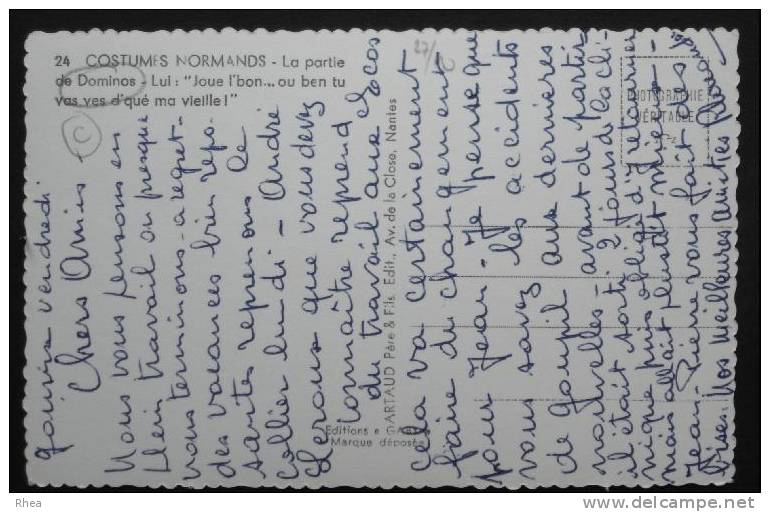 24 COSTUMES NORMANDS - La partie
de Dominos - Lui : "Joue l'bon... ou ben tu
vas ves d'qué ma vieille!"
PHOTOGRAPHIE
VÉRITABLE
Editions
GABY
ARTAUD Père & Fils Edit., Av. de la Close, Nantes
Marque déposée
vendredi
Chers Amis
Nous vous pensons en
plein travail ou presque
nous terminons à regret
des vacances bien repo-
santes reprenons le
collier lundi - André
que vous devez
connaître reprend
du travail aux
cela va certainement
faire du changement
pour Jean - Je pense que
vous savez les accidents
de Goupil aux dernières
nouvelles - avant de partir
il était sorti 2 jours de la cli-
nique puis obligé d'y retourner
mais allait plutôt mieux -
Jean-Pierre vous fait des
bises. Nos meilleures amitiés
Rhea
www.delcampe.net